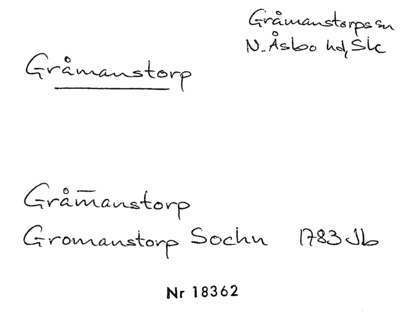 Gråmanstorps sn
N. Åsbo hd, Sk
Gråmanstorp
Gråm̅anstorp
Gromanstorp Sochn 1783 Jb
Nr 18362